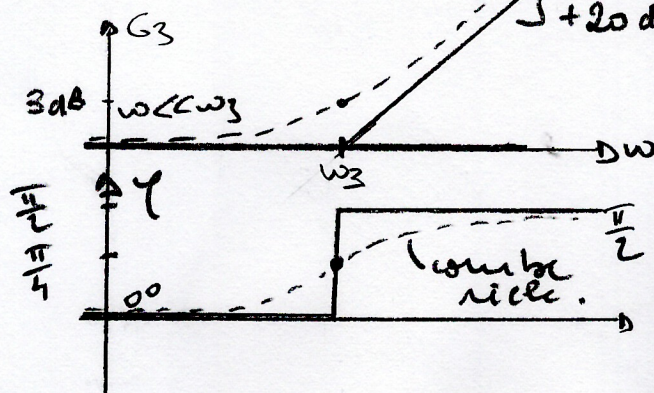 G3
+20 d
3dB
ω<<ω3
ω3
ω
π/2
φ
π/4
0°
π/2
courbe
réelle.